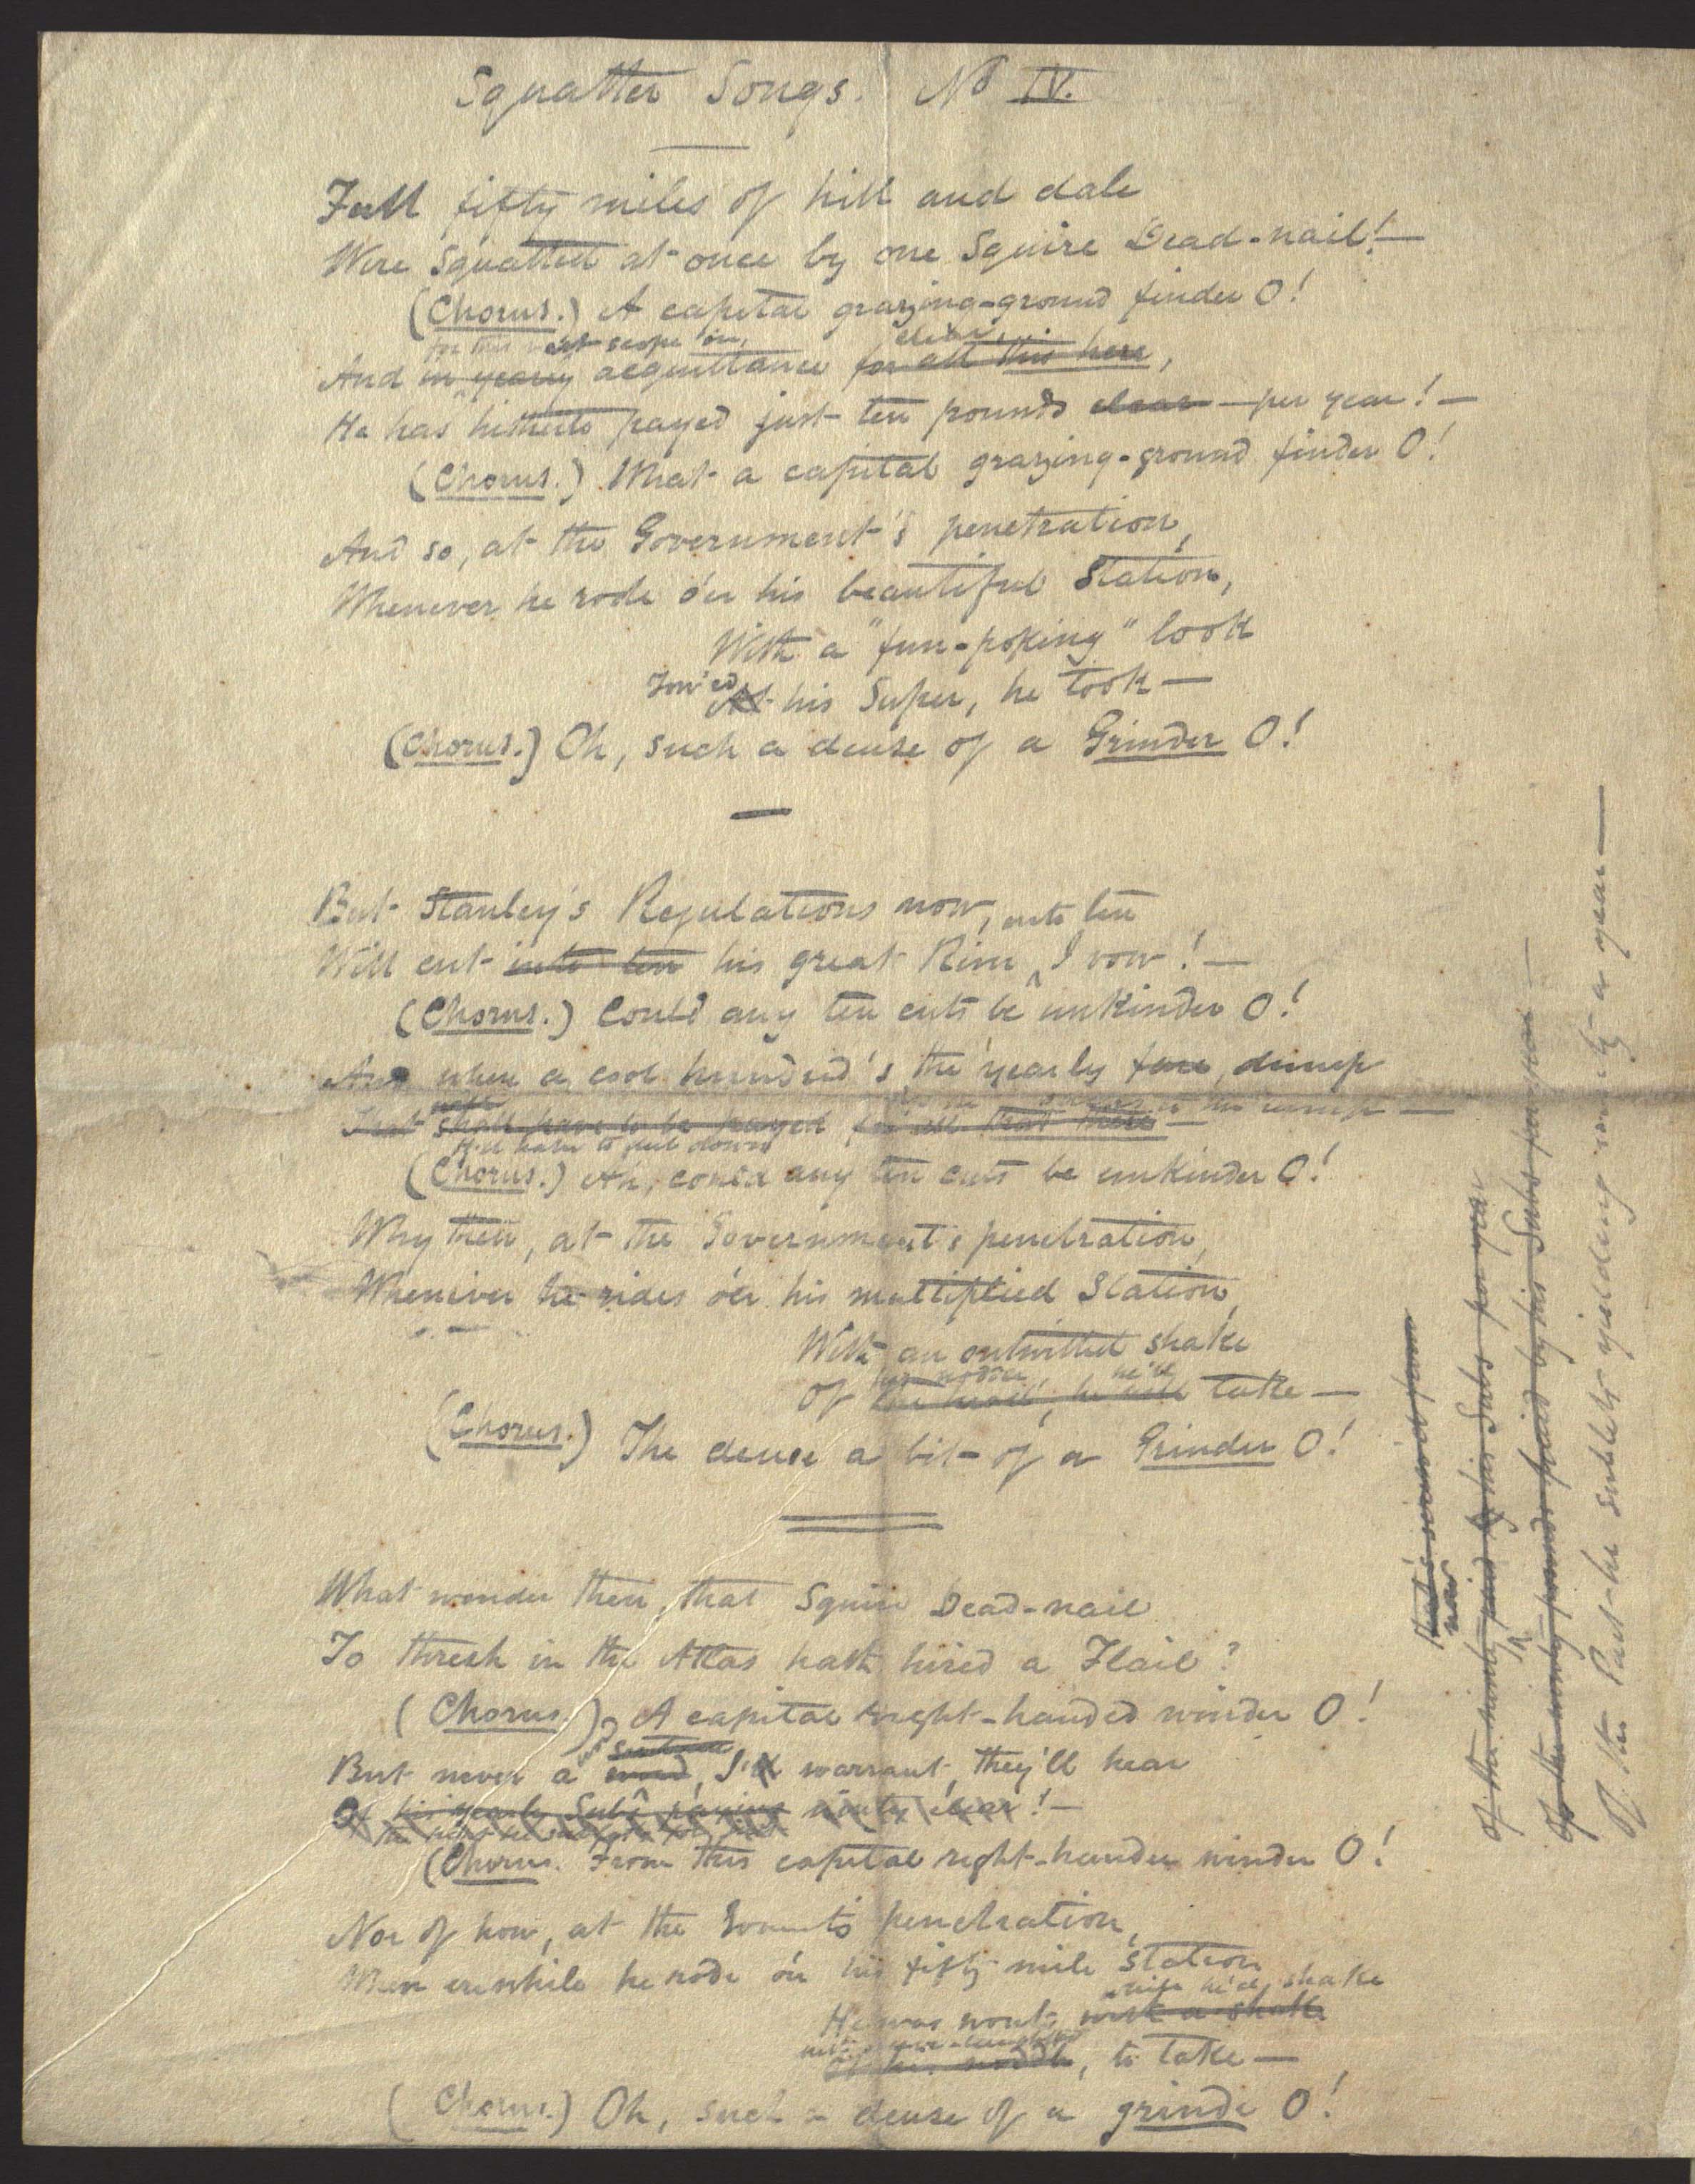 Squatter Songs. No IV.
Full fifty miles of hill and dale
Were squatted at once by one Squire Dead-nail!—
(Chorus.) A capital grazing-ground finder O!
scope
And in yearly acquittance for all this here,
He has hitherto payed just ten pounds clear — per year!—
(Chorus.) What a capital grazing-ground finder O!
And so, at the Government's penetration,
Whenever he rode o'er his beautiful Station,
With a "fun-poking" look
Tow'ed
At his Super, he took—
(Chorus.) Oh, such a deuse of a Grinder O!
But Stanley's Regulations now,
into ten
Will cut into ten his great Run, I vow!—
(Chorus.) Could any ten cuts be unkinder O!
And when a cool hundred's the yearly fare, dump
will
That shall have to be payed for all that there—
He'll have to put down
(Chorus.) Ah, could any ten cuts be unkinder O!
Why then, at the Government's penetration,
Whenever he rides o'er his multiplied Station,
With an outwitted shake
his noddle he'll
Of the head, he will take—
(Chorus.) The deuse a bit of a Grinder O!
What wonder then, that Squire Dead-nail
To thresh in the Atlas hath hired a Flail?
(Chorus.) A capital right-handed winder O!
But never a word, I'll warrant, they'll hear
Of his yearly Subs paying ninety clear!—
(Chorus. From this capital right-handed winder O!
Nor of how, at the Govmnt's penetration,
When erewhile he rode o'er his fifty mile Station
he'd shake
He was wont, with a shake
Of his noddle, to take—
(Chorus.) Oh, such a deuse of a grinder O!
now
Of the ninety paid by his Subs per year
Of the ninety pounds paid by his Subs per year—
Of the Part he sublets yielding ninety a year—